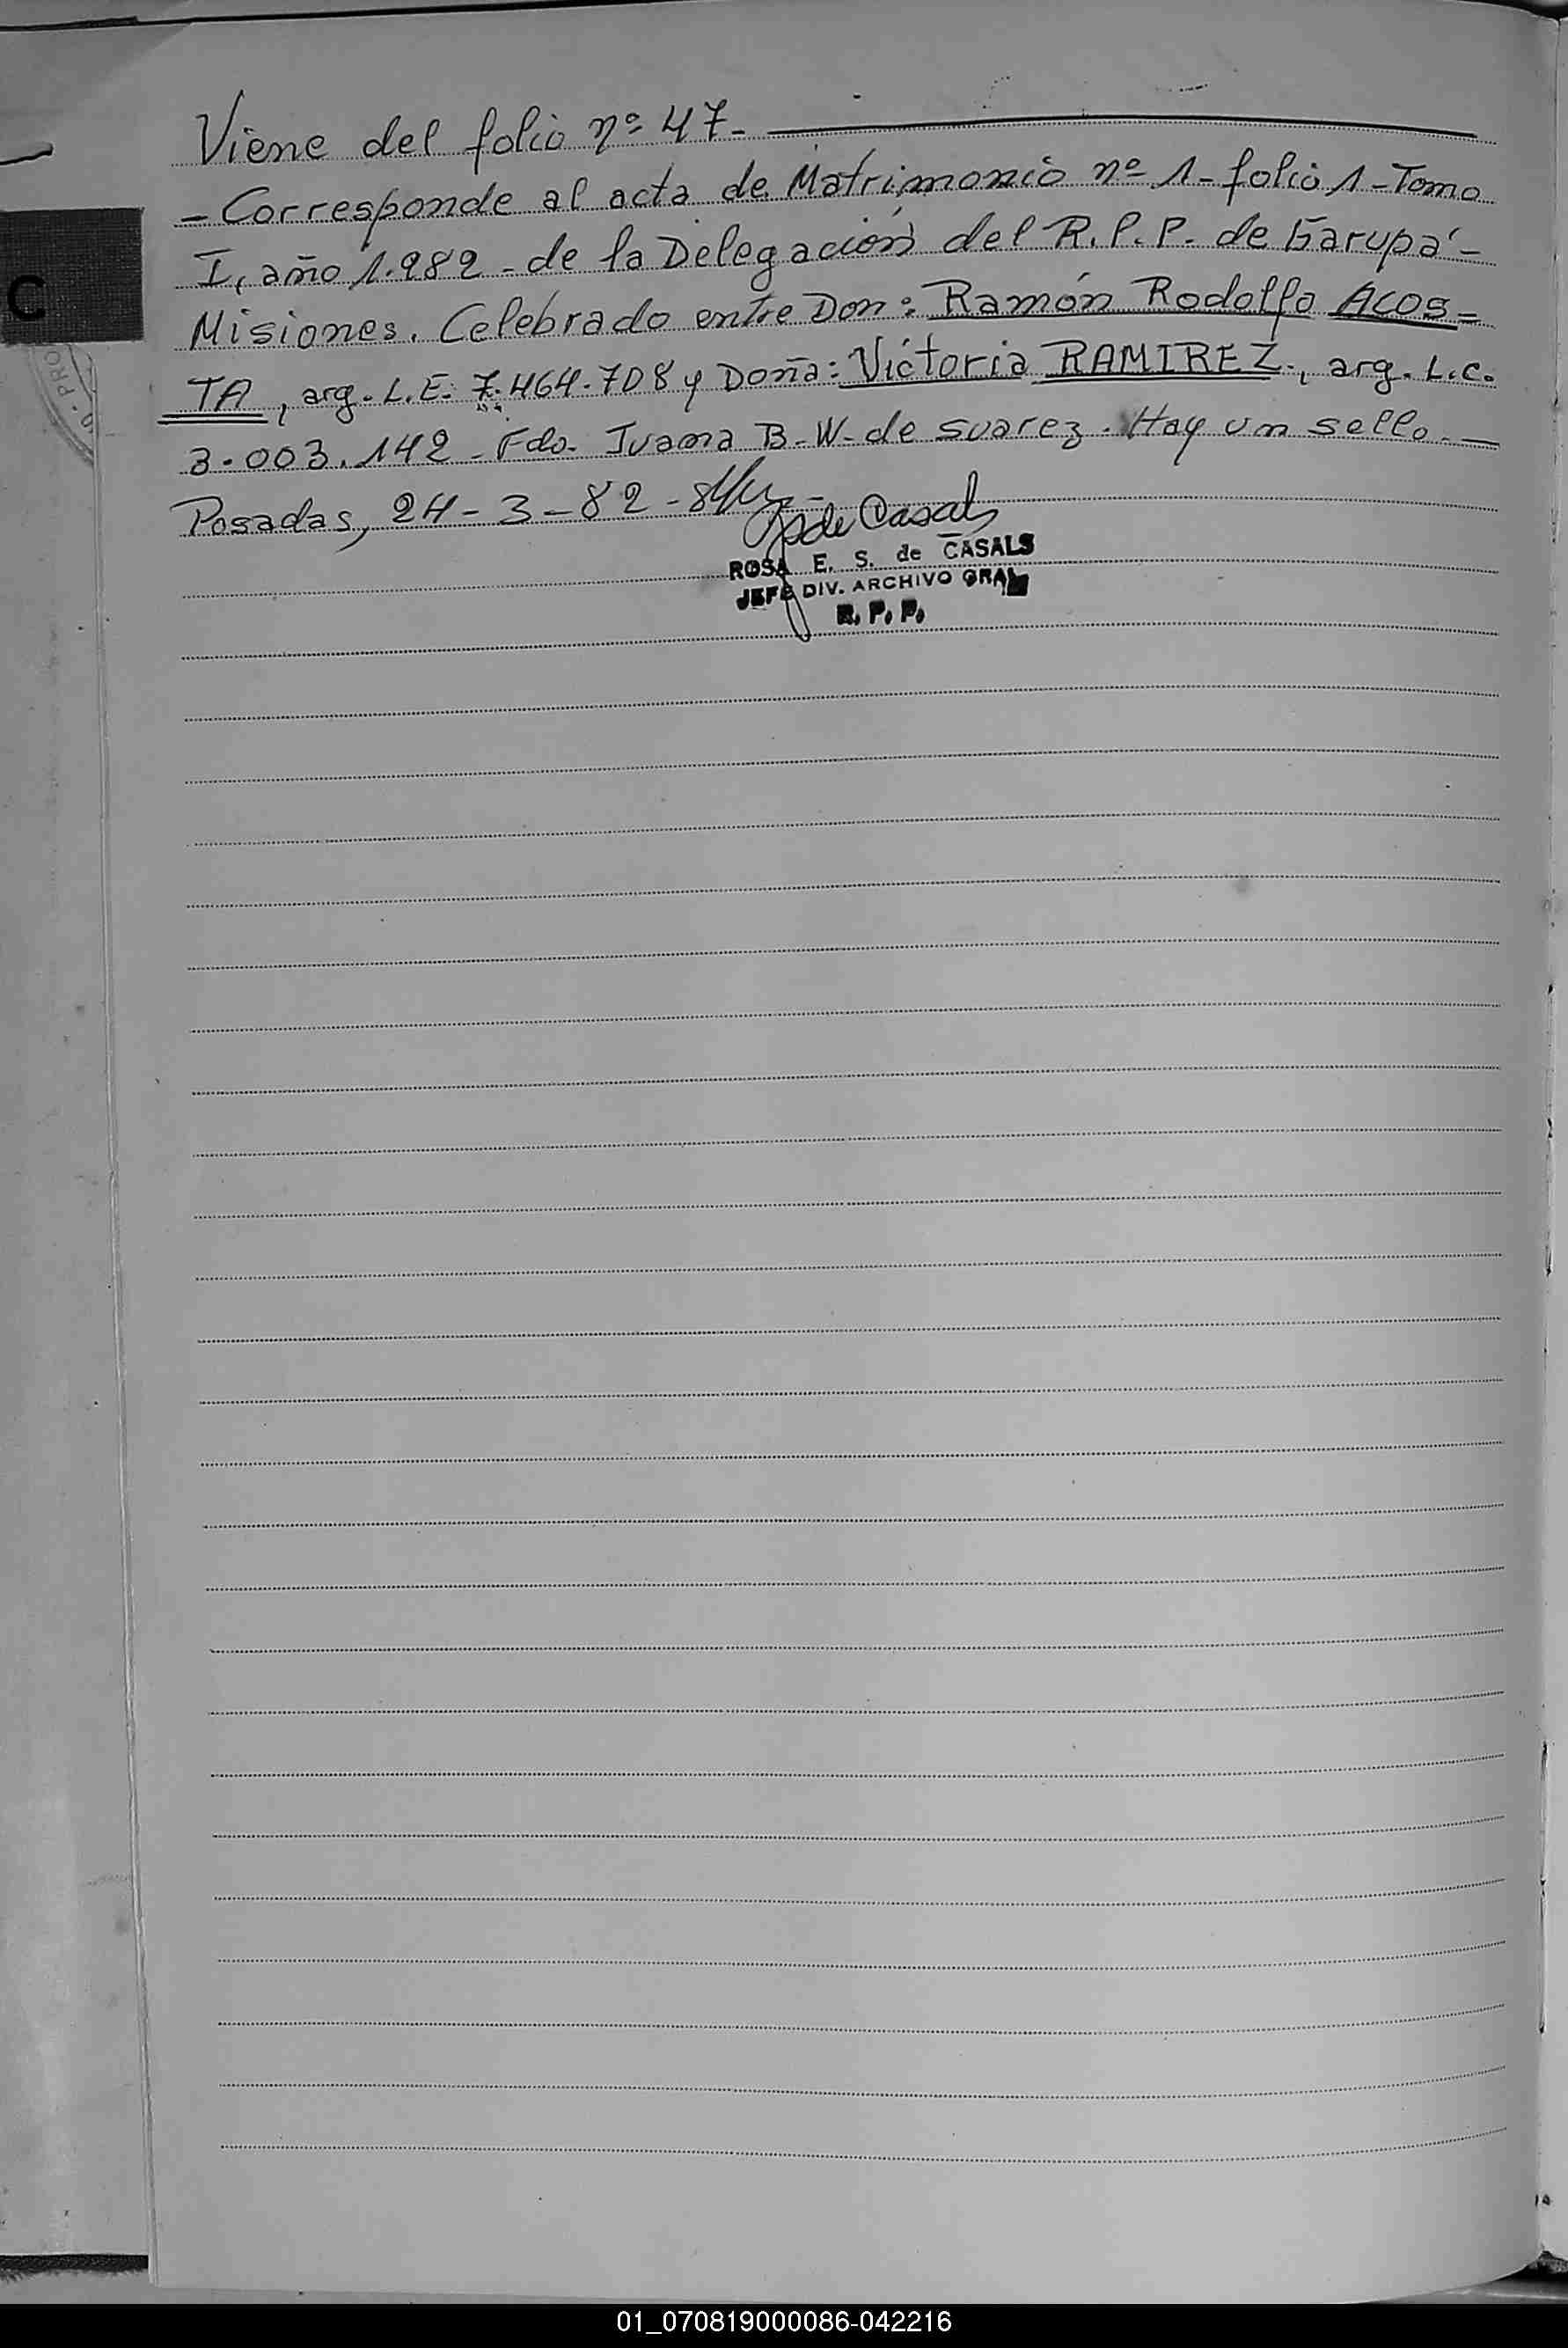 Viene del folio nº 47-
- Corresponde al acta de Matrimonio nº 1- folio 1 - Tomo
I, año 1.982 - de la Delegación del R.P.P. de Garupá -
Misiones. Celebrado entre Don: Ramón Rodolfo ACOS-
TA, arg. L.E. 7.464.708 y Doña: Victoria RAMIREZ., arg. L.C.
3.003.142 - Fdo. Juana B. W. de Suarez. Hay un sello. -
Posadas, 24-3-82-
de Casals
ROSA E. S. de CASALS
JEFE DIV. ARCHIVO GRAL
R. P. P.
C
PRO
01_070819000086-042216